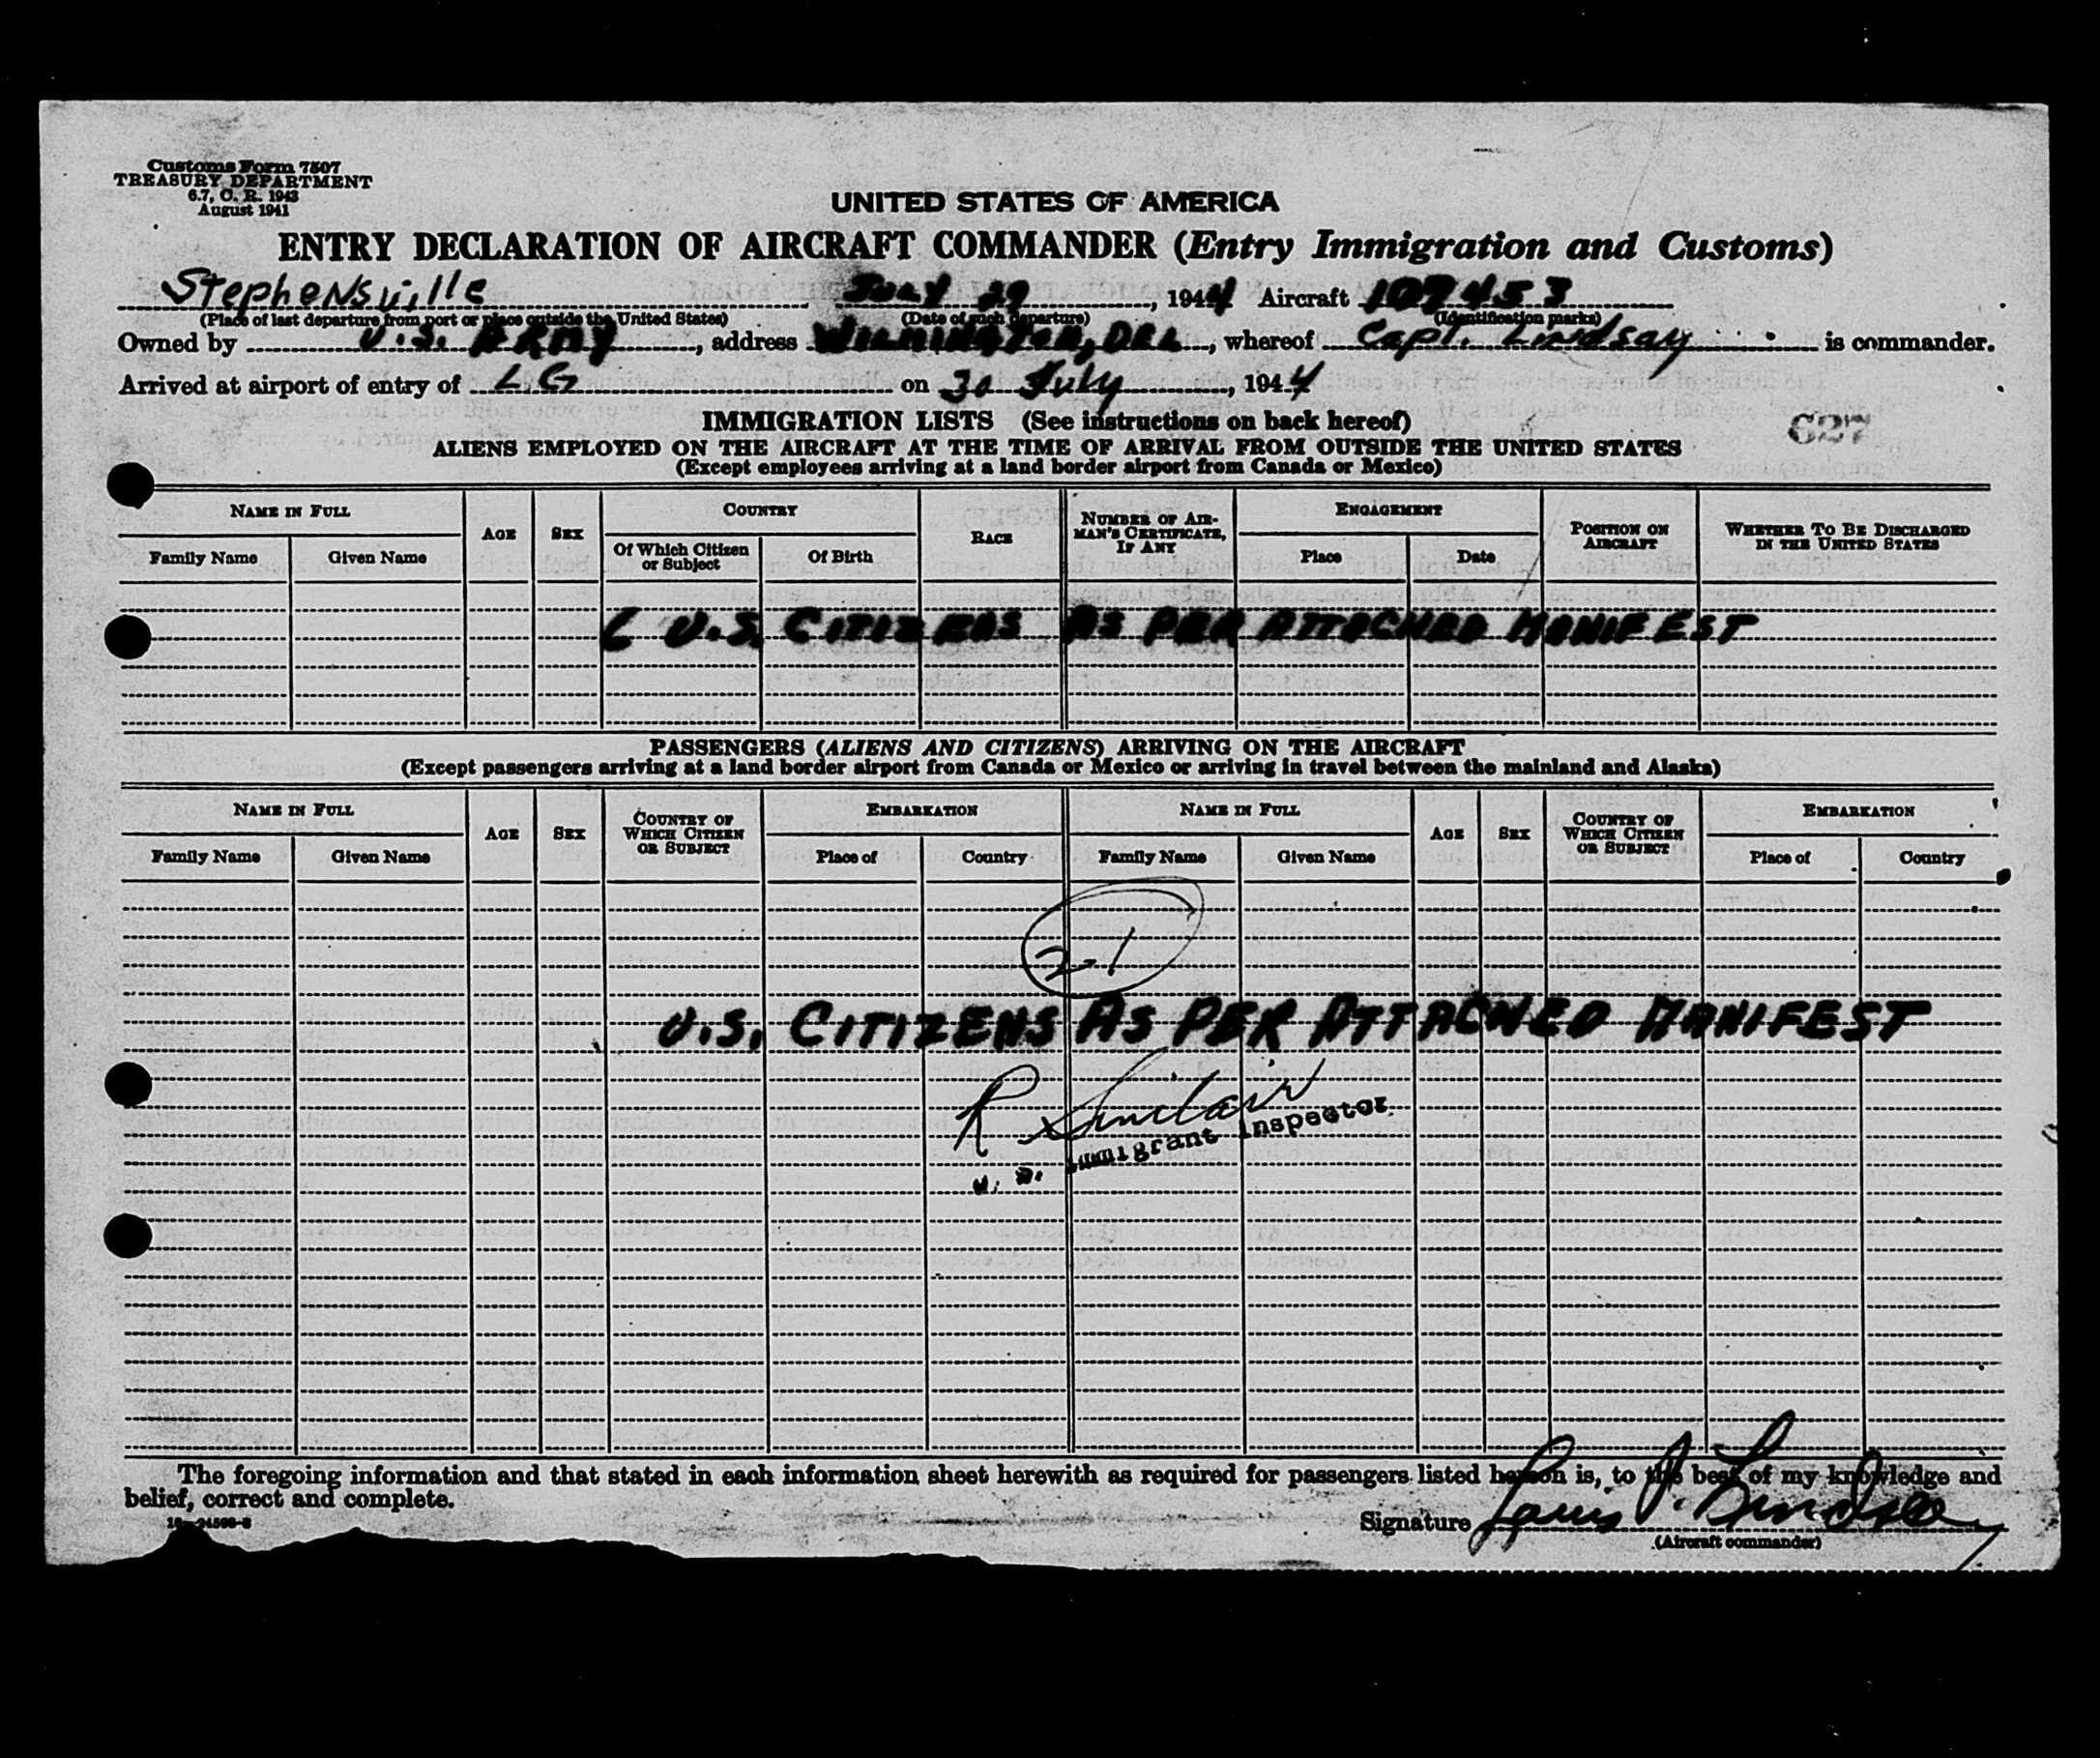 Customs Form 7507
TREASURY DEPARTMENT
6.7, C. R. 1943
August 1941
UNITED STATES OF AMERICA
ENTRY DECLARATION OF AIRCRAFT COMMANDER (Entry Immigration and Customs)
Stephensville July 29, 1944 Aircraft 107453
(Place of last departure from port or place outside the United States) (Date of such departure) (Identification marks)
Owned by U.S. ARMY, address WILMINGTON, DEL, whereof Capt. Lindsay is commander.
Arrived at airport of entry of L.G on 30 July, 1944
IMMIGRATION LISTS (See instructions on back hereof)
627
ALIENS EMPLOYED ON THE AIRCRAFT AT THE TIME OF ARRIVAL FROM OUTSIDE THE UNITED STATES
(Except employees arriving at a land border airport from Canada or Mexico)
NAME IN FULL AGE SEX COUNTRY RACE NUMBER OF AIRMAN'S CERTIFICATE, IF ANY ENGAGEMENT POSITION ON AIRCRAFT WHETHER TO BE DISCHARGED IN THE UNITED STATES
Family Name Given Name Of Which Citizen or Subject Of Birth Place Date
U.S. CITIZENS AS PER ATTACHED MANIFEST
PASSENGERS (ALIENS AND CITIZENS) ARRIVING ON THE AIRCRAFT
(Except passengers arriving at a land border airport from Canada or Mexico or arriving in travel between the mainland and Alaska)
NAME IN FULL AGE SEX COUNTRY OF WHICH CITIZEN OR SUBJECT EMBARKATION NAME IN FULL AGE SEX COUNTRY OF WHICH CITIZEN OR SUBJECT EMBARKATION
Family Name Given Name Place of Country Family Name Given Name Place of Country
21
U.S. CITIZENS AS PER ATTACHED MANIFEST
R Sinclair
U. S. Immigrant Inspector
The foregoing information and that stated in each information sheet herewith as required for passengers listed hereon is, to the best of my knowledge and
belief, correct and complete.
Signature Louis J. Lindsay
(Aircraft commander)